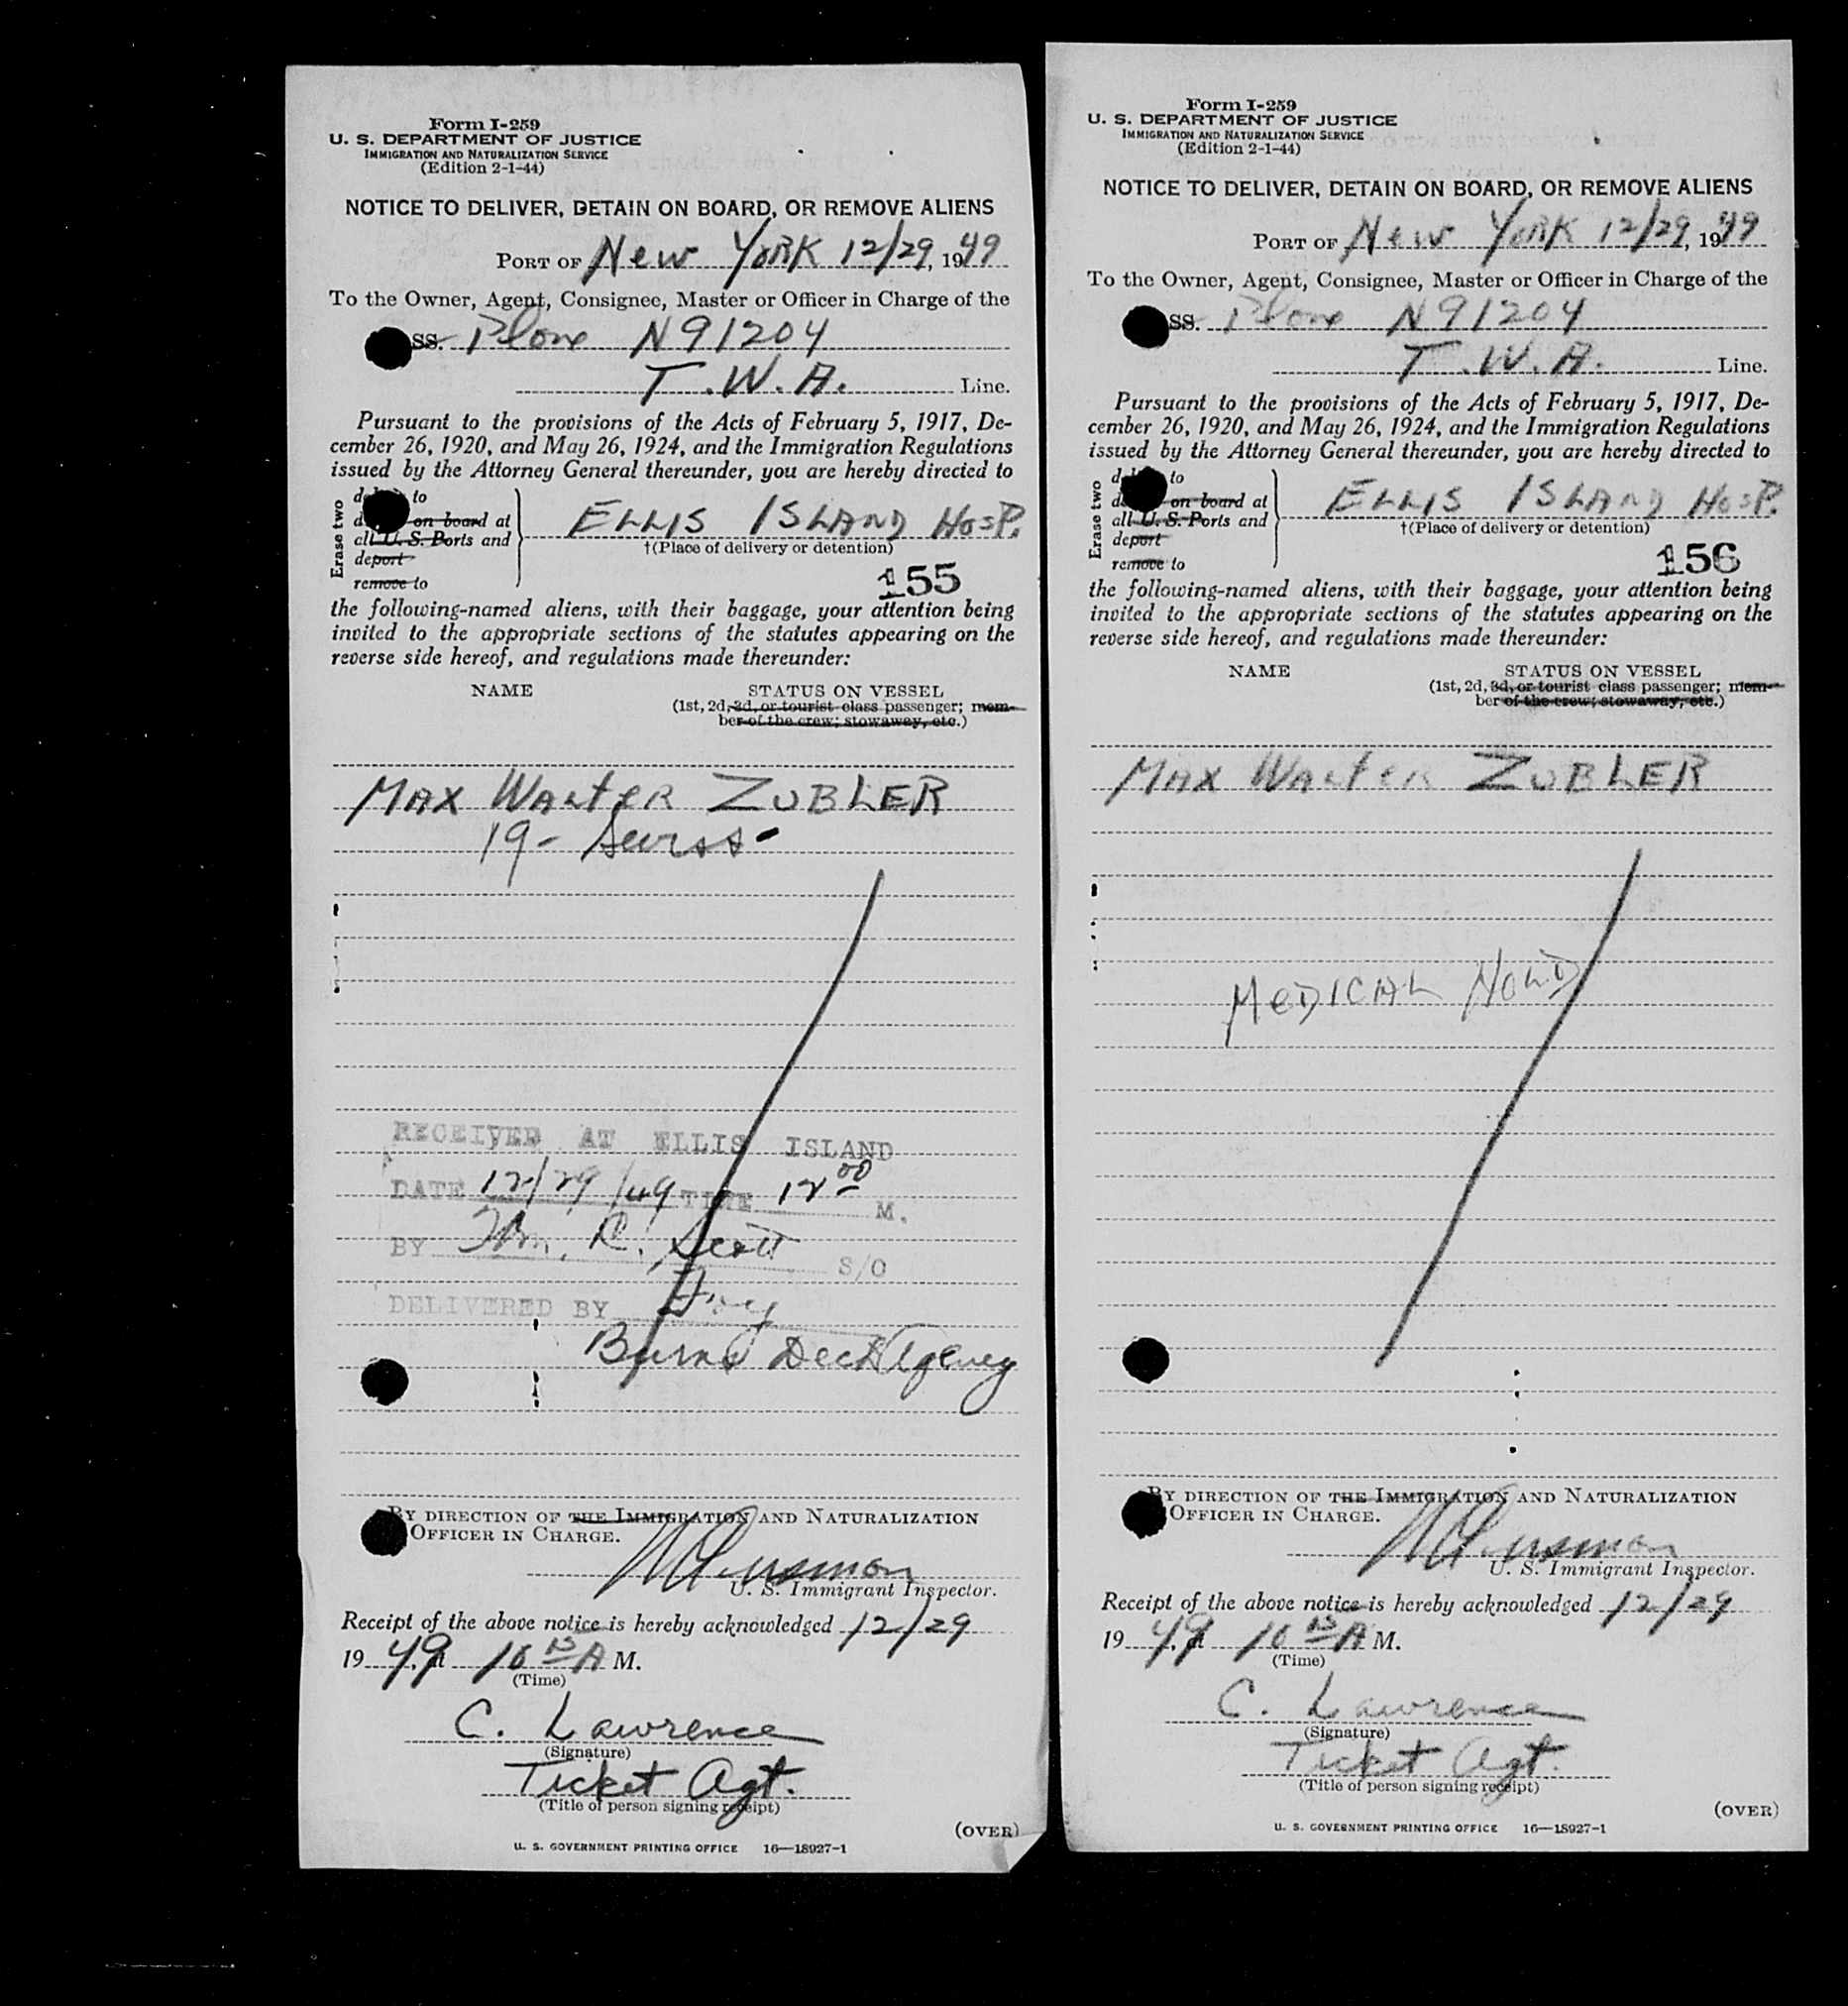 Form I-259
U. S. DEPARTMENT OF JUSTICE
IMMIGRATION AND NATURALIZATION SERVICE
(Edition 2-1-44)
NOTICE TO DELIVER, DETAIN ON BOARD, OR REMOVE ALIENS
PORT OF New YORK 12/29, 1949
To the Owner, Agent, Consignee, Master or Officer in Charge of the
SS. Plane N91204
T.W.A. Line.
Pursuant to the provisions of the Acts of February 5, 1917, De-
cember 26, 1920, and May 26, 1924, and the Immigration Regulations
issued by the Attorney General thereunder, you are hereby directed to
Erase two
to
on board at
all U. S. Ports and
deport
remove to
ELLIS ISLAND HOSP.
†(Place of delivery or detention)
155
the following-named aliens, with their baggage, your attention being
invited to the appropriate sections of the statutes appearing on the
reverse side hereof, and regulations made thereunder:
NAME STATUS ON VESSEL
(1st, 2d, 3d, or tourist class passenger; mem-
ber of the crew; stowaway, etc.)
MAX WALTER ZUBLER
19- Swiss-
RECEIVED AT ELLIS ISLAND
DATE 12/29/49 TIME 12 00 M.
BY Wm. R. Scott S/O
DELIVERED BY
Burns Dect Agency
BY DIRECTION OF THE IMMIGRATION AND NATURALIZATION
OFFICER IN CHARGE.
U. S. Immigrant Inspector.
Receipt of the above notice is hereby acknowledged 12/29
1949, at 10 15 A M.
(Time)
C. Lawrence
(Signature)
Ticket Agt.
(Title of person signing receipt)
(OVER)
U. S. GOVERNMENT PRINTING OFFICE 16—18927-1
Form I-259
U. S. DEPARTMENT OF JUSTICE
IMMIGRATION AND NATURALIZATION SERVICE
(Edition 2-1-44)
NOTICE TO DELIVER, DETAIN ON BOARD, OR REMOVE ALIENS
PORT OF New YORK 12/29, 1949
To the Owner, Agent, Consignee, Master or Officer in Charge of the
SS. Plane N91204
T.W.A. Line.
Pursuant to the provisions of the Acts of February 5, 1917, De-
cember 26, 1920, and May 26, 1924, and the Immigration Regulations
issued by the Attorney General thereunder, you are hereby directed to
Erase two
to
on board at
all U. S. Ports and
deport
remove to
ELLIS ISLAND HOSP.
†(Place of delivery or detention)
156
the following-named aliens, with their baggage, your attention being
invited to the appropriate sections of the statutes appearing on the
reverse side hereof, and regulations made thereunder:
NAME STATUS ON VESSEL
(1st, 2d, 3d, or tourist class passenger; mem-
ber of the crew; stowaway, etc.)
MAX WALTER ZUBLER
MEDICAL HOLD
BY DIRECTION OF THE IMMIGRATION AND NATURALIZATION
OFFICER IN CHARGE.
U. S. Immigrant Inspector.
Receipt of the above notice is hereby acknowledged 12/29
1949, at 10 15 A M.
(Time)
C. Lawrence
(Signature)
Ticket Agt.
(Title of person signing receipt)
(OVER)
U. S. GOVERNMENT PRINTING OFFICE 16—18927-1